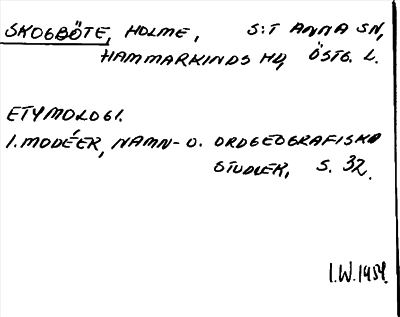 SKOGBÖTE, HOLME, S:T ANNA SN,
HAMMARKINDS HD, ÖSTG. L.
ETYMOLOGI.
I. MODÉER, NAMN- O. ORDGEOGRAFISKA
STUDIER, S. 32.
I.W. 1954.